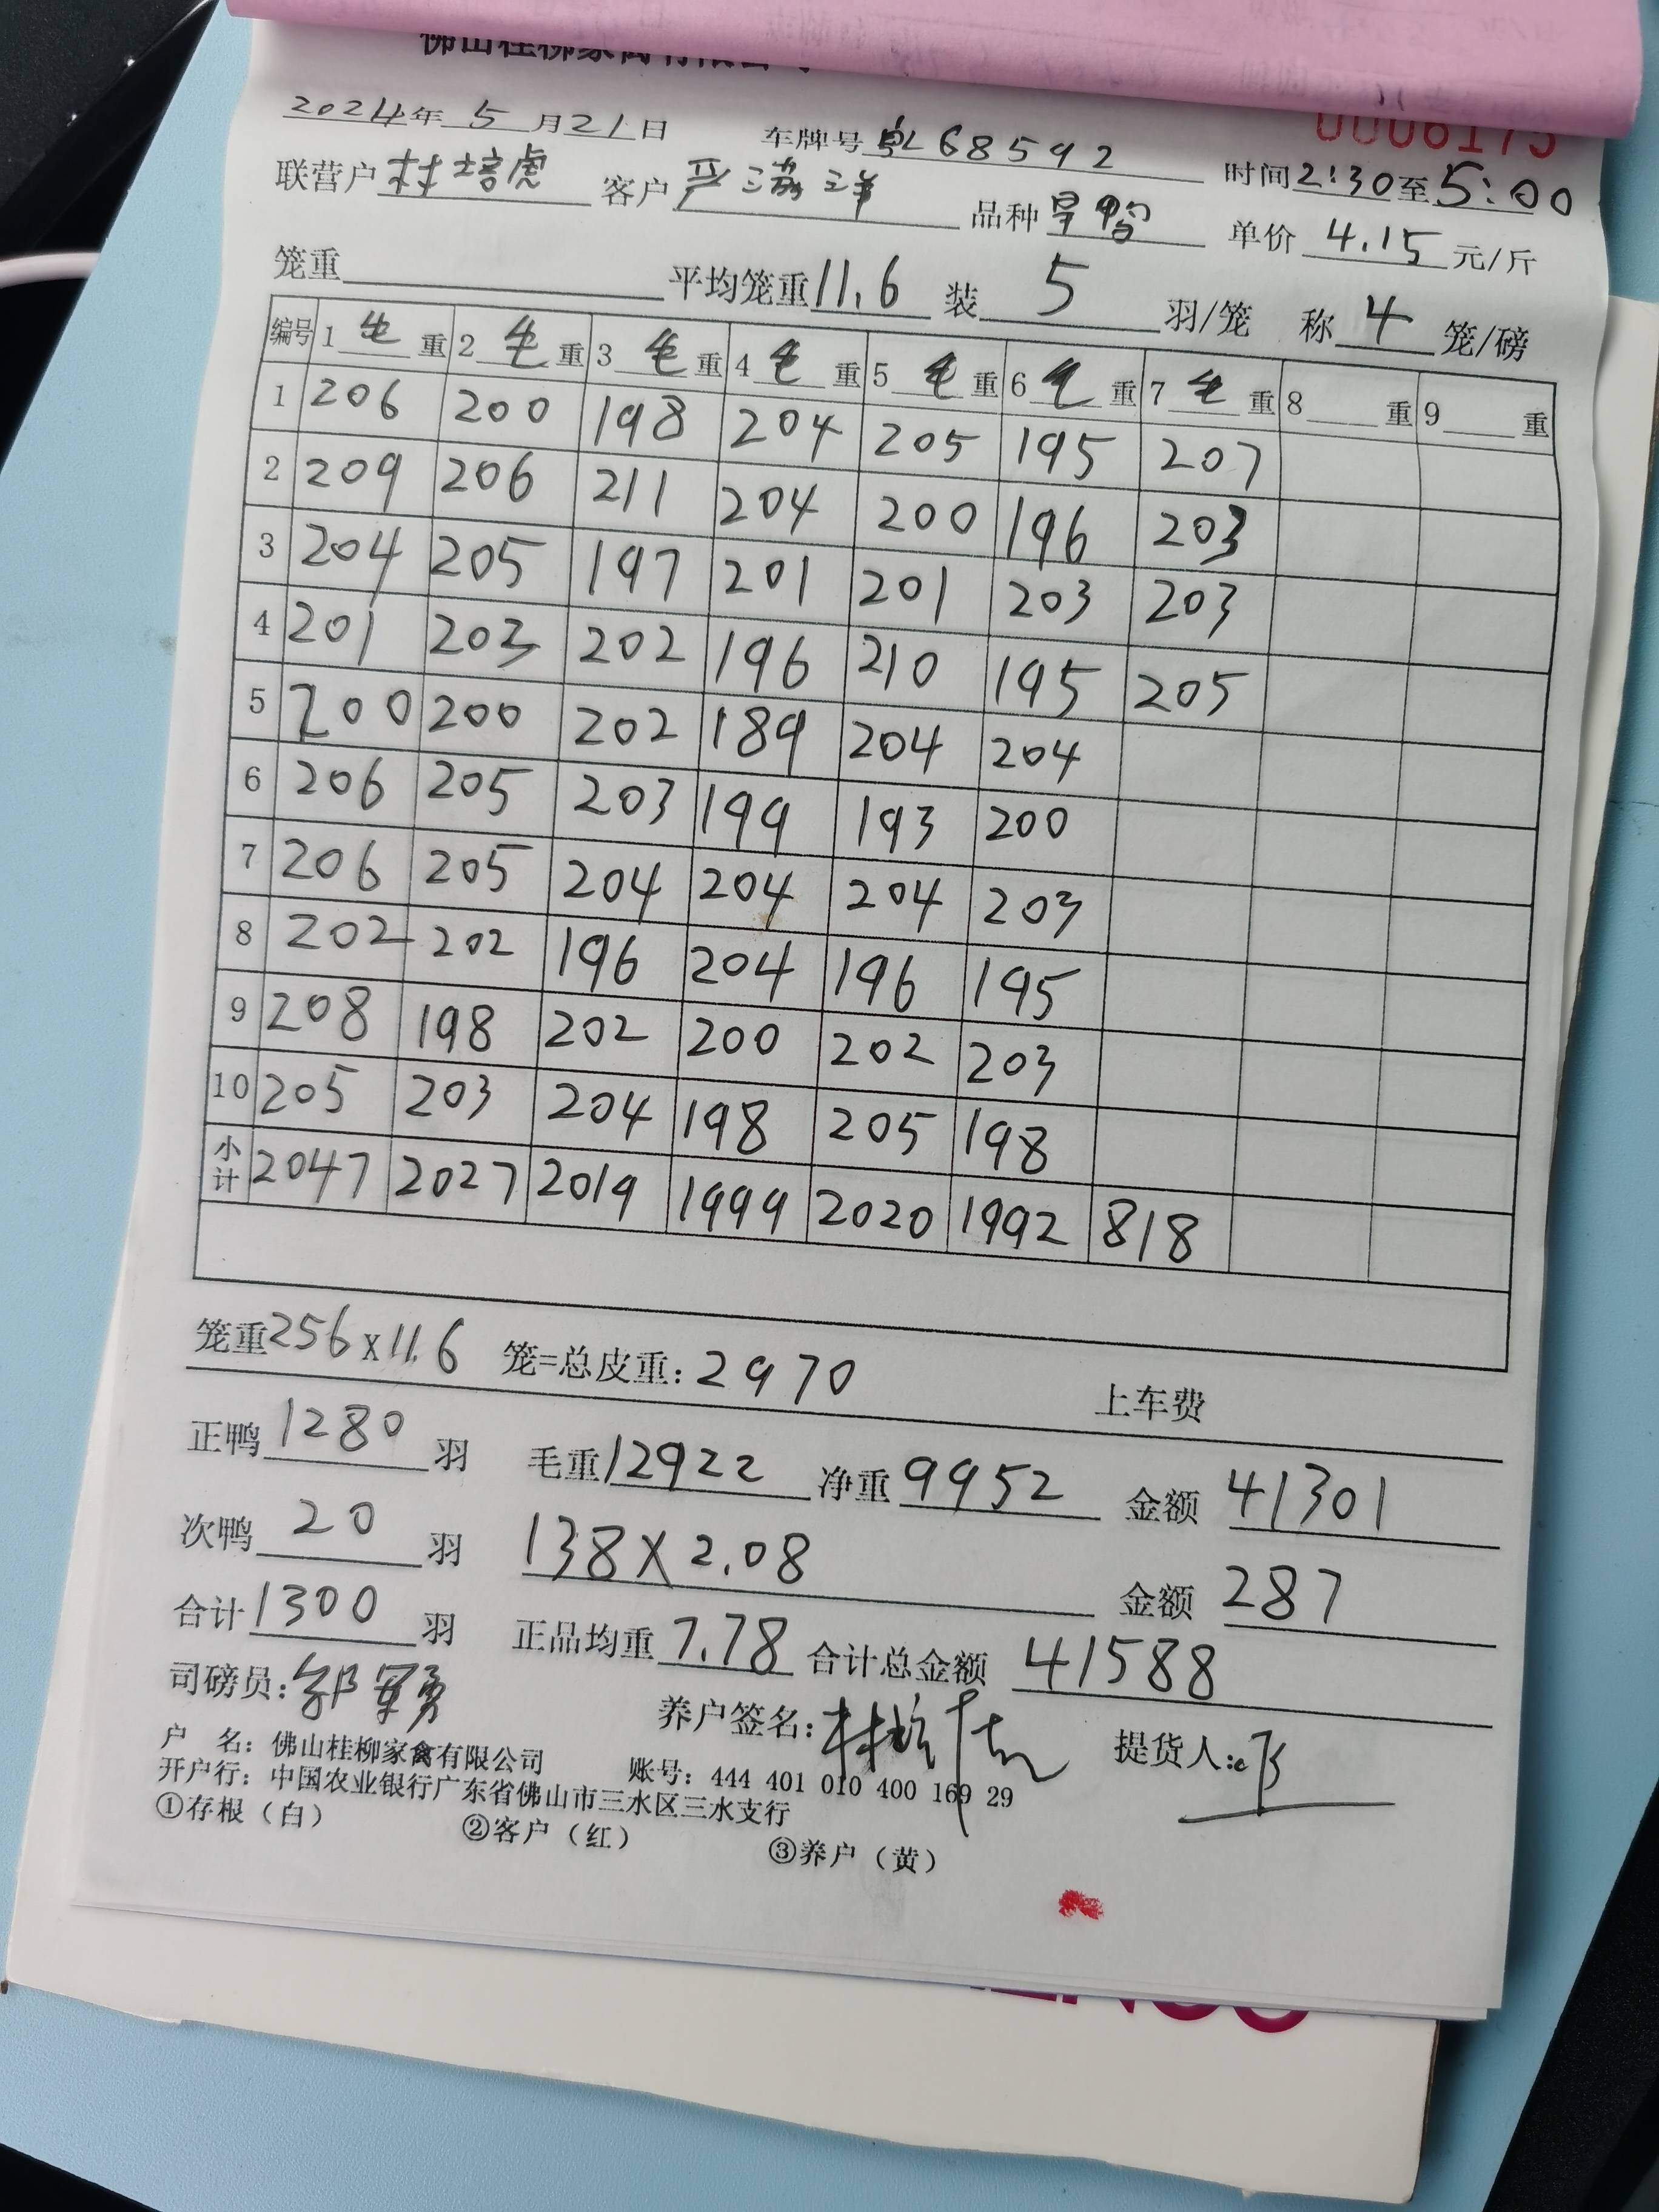 佛山桂柳家禽有限公司
0006175
2024年 5 月 21 日 车牌号 L68592 时间 2:30 至 5:00
联营户 林培虎 客户 严满洋 品种 旱鸭 单价 4.15 元/斤
笼重 平均笼重 11.6 装 5 羽/笼 称 4 笼/磅
编号 1 毛 重 2 毛 重 3 毛 重 4 毛 重 5 毛 重 6 毛 重 7 毛 重 8 重 9 重
1 206 200 198 204 205 195 207
2 209 206 211 204 200 196 203
3 204 205 197 201 201 203 203
4 201 203 202 196 210 195 205
5 200 200 202 189 204 204
6 206 205 203 199 193 200
7 206 205 204 204 204 203
8 202 202 196 204 196 195
9 208 198 202 200 202 203
10 205 203 204 198 205 198
小计 2047 2027 2019 1999 2020 1992 818
笼重 256 x 11.6 笼=总皮重: 2970 上车费
正鸭 1280 羽 毛重 12922 净重 9952 金额 41301
次鸭 20 羽 138 X 2.08 金额 287
合计 1300 羽 正品均重 7.78 合计总金额 41588
司磅员: 养户签名: 提货人:
户 名: 佛山桂柳家禽有限公司 账号: 444 401 010 400 169 29
开户行: 中国农业银行广东省佛山市三水区三水支行
①存根（白） ②客户（红） ③养户（黄）